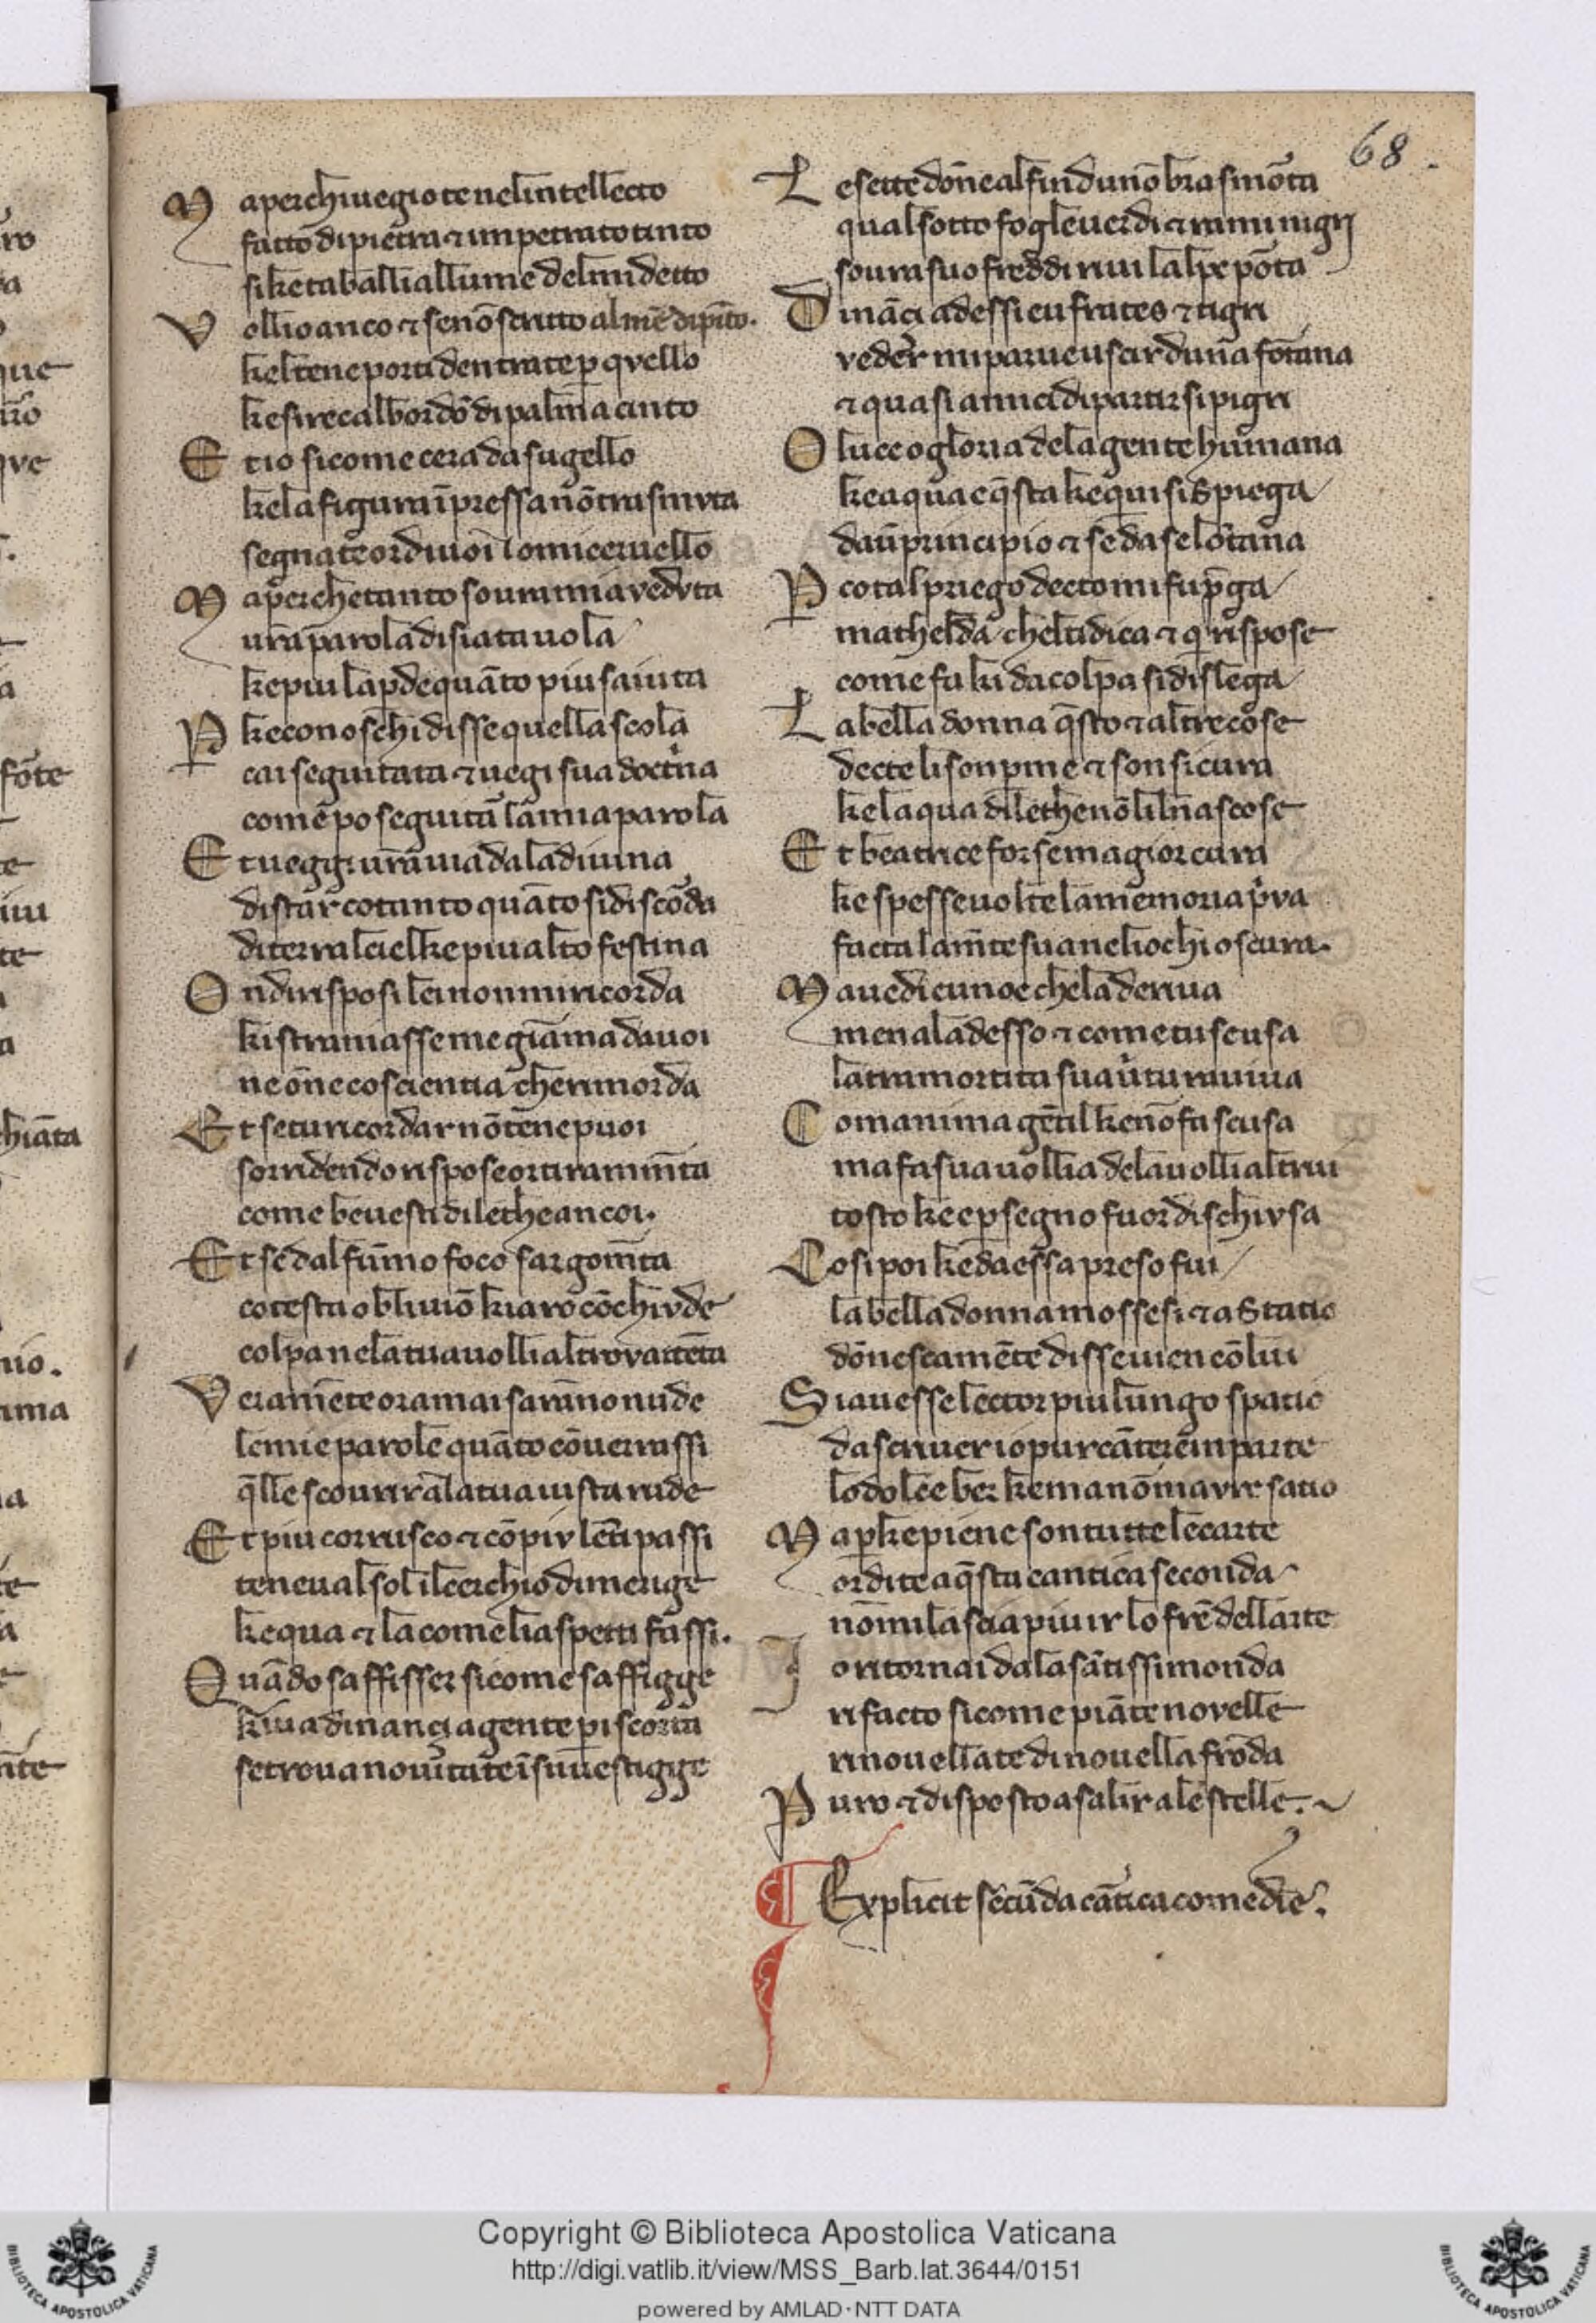 68.
M a perch i uegio te nel intellecto
facto di pietra ⁊ impetrato tinto
si ke taballia il lume del mi detto
V ollio anco ⁊ se nō scritto almē dipīto.
kel te ne porti dentra te p quello
ke si reca l bordō di palma cinto
E t io si come cera da sugello
ke la figura īpressa nō trasmuta
segnato e or di uoi lo mi ceruello
M a perche tanto soura mia veduta
ura parola disiata uola
ke piu la pde quāto piu saiuta
P ke conoschi disse quella scola
cai seguitata ⁊ uegi sua doctna
come po seguitar la mia parola
E t ueggi ura uia da la diuina
distar cotanto quāto si discōda
di terra l ciel ke piu alto festina
O nd i risposi lei non mi ricorda
ki straniasse me giāma da uoi
ne one coscientia che rimorda
E t se tu ricordar nō te ne puoi
sorridendo rispose or ti ramīta
come beuesti di lethe ancoi.
E t se dal fūmo foco sargomīta
cotesta obliuiō kiaro cōchiude
colpa ne la tua uollia altrov attēta
V eramēte oramai sarāno nude
le mie parole quāto cōuerrassi
qlle scourir a la tua uista rude
E t piu corrusco ⁊ cō piu lēti passi
teneua l sol il cerchio di merige
ke qua ⁊ la come li aspetti fassi.
Q uādo saffisser si come saffigge
ki ua dinanci a gente p iscorta
se trova nouitate ī su uestigge
L e sette dōne al fin dunōbra smōta
qual sotto fogle uerdi ⁊ rami nigri
soura suo freddi riui lalpe pōta
D inācī ad essi eufrates ⁊ tigri
veder mi parue uscir duna fōtana
⁊ quasi amici dipartirsi pigri
O luce o gloria de la gente humana
ke aqua e qsta ke qui si spiega
da ū principio ⁊ se da se lōtana
P cotal priego decto mi fu pga
mathelda che l ti dica ⁊ q rispose
come fa ki da colpa si dislega
L a bella donna qsto ⁊ altre cose
decte li son p me ⁊ son sicura
ke laqua di lethe nō lil nascose
E t beatrice forse magior cura
ke spesse uolte la memoria pva
facta la mte sua neli ochi oscura.
M a uedi eunoe che la deriua
menal ad esso ⁊ come tu se usa
la tramortita sua utu rauiua
C om anima gētil ke nō fa scusa
ma fa sua uollia de la uollia altrui
tosto ke e p segno fuor dischiusa
C osi poi ke da essa preso fui
la bella donna mossesi ⁊ a statio
dōnescamēte disse uien cō lui
S i auesse lector piu lungo spatio
da scriuer io pur cāterē in parte
lo dolce ber ke ma nō mavre satio
M a p ke piene son tutte le carte
ordite a qsta cantica seconda
nō mi lascia piu ir lo frē dell arte
I o ritornai da la sātissim onda
rifacto si come piāte novelle
rinouellate di nouella frōda
P uro ⁊ disposto a salir a le stelle.
Explicit secūda cātica comedie.
Copyright © Biblioteca Apostolica Vaticana
http://digi.vatlib.it/view/MSS_Barb.lat.3644/0151
powered by AMLAD·NTT DATA